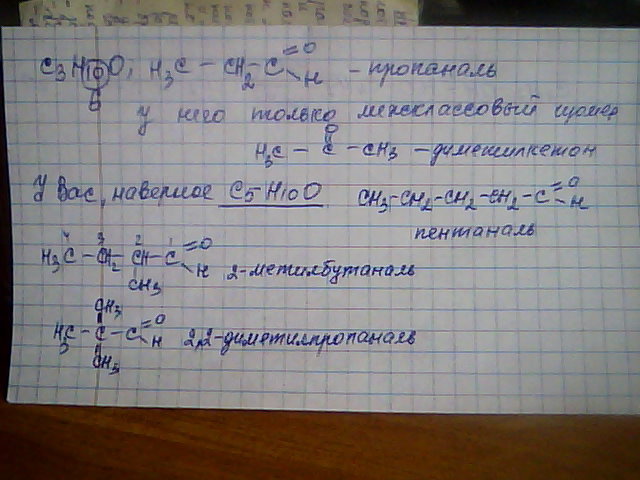 C3H10O; H3C – CH2 – C =O H – пропаналь
6
у него только межклассовый изомер
O
H3C – C – CH3 – диметилкетон
У Вас, наверное C5H10O CH3-CH2-CH2-CH2-C =O H
пентаналь
4 3 2 1
H3C – CH2 – CH – C =O H
CH3 2-метилбутаналь
CH3
H3C – C – C =O H 2,2-диметилпропаналь
CH3